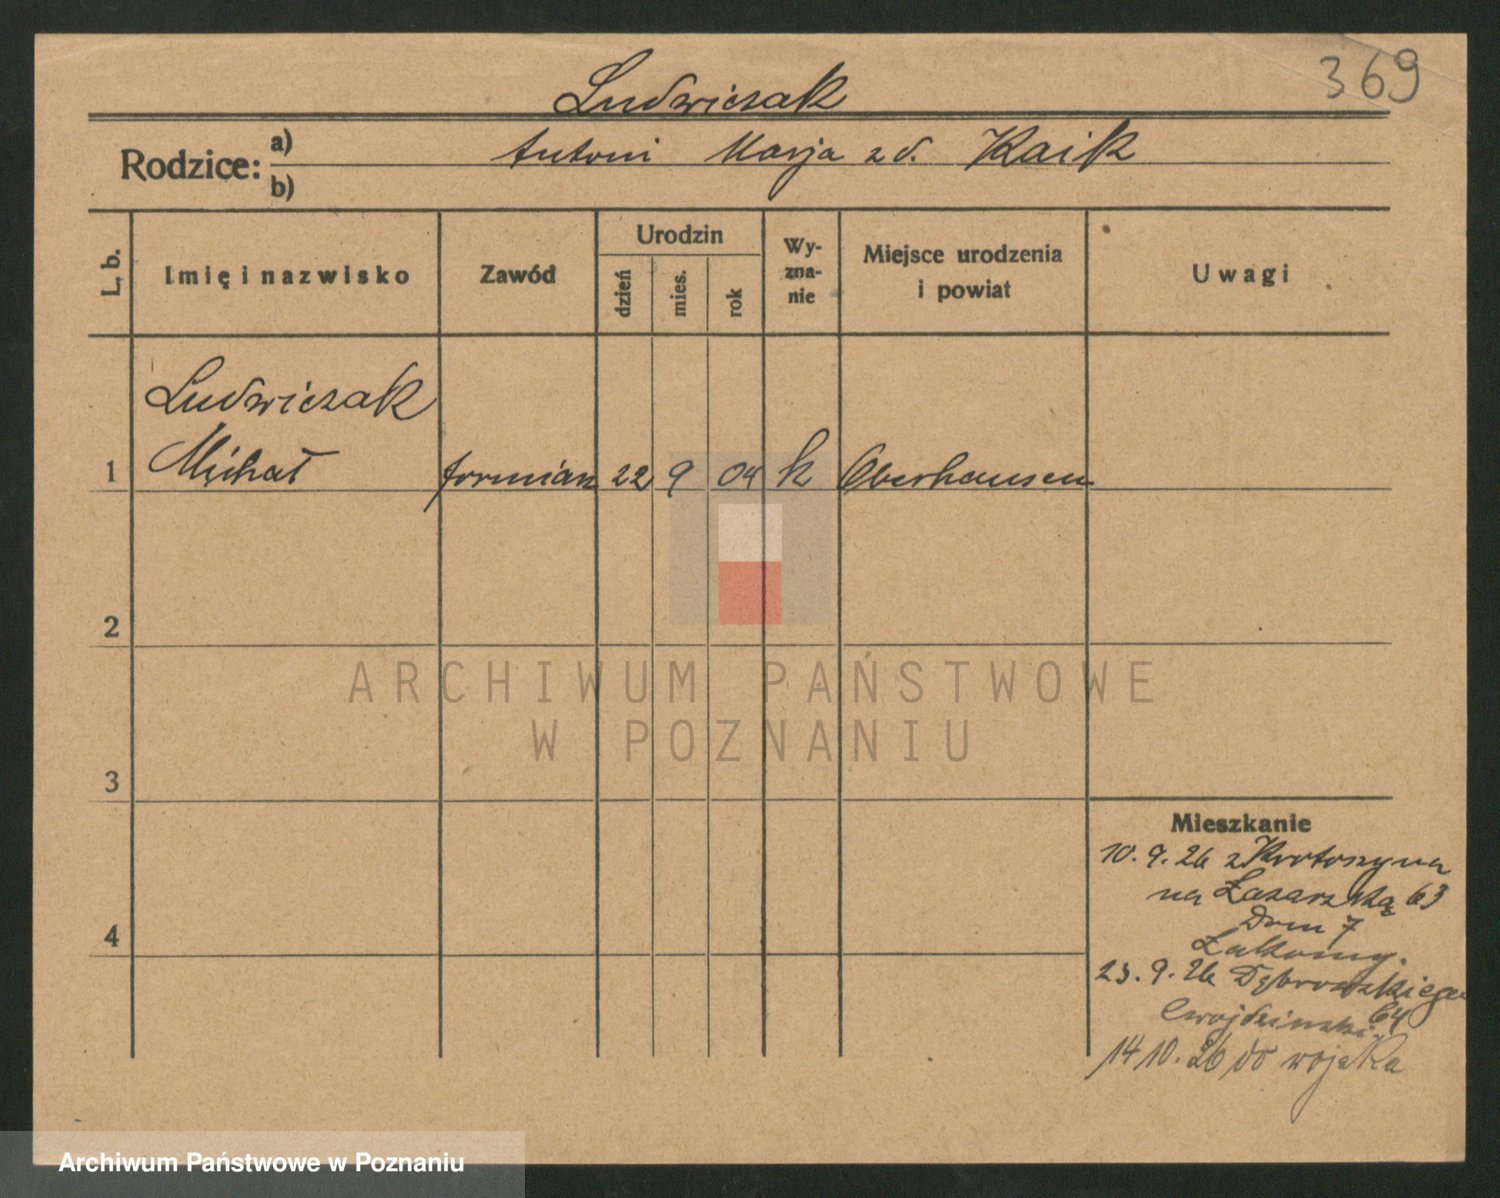 369
Ludwiczak
Rodzice: a) Antoni Marja z d. Kaik
b)
L. b. Imię i nazwisko Zawód Urodzin dzień mies. rok Wyznanie Miejsce urodzenia i powiat Uwagi
Ludwiczak
1 Michał formiarz 22 9 04 k Oberhausen
2
3
4
Mieszkanie
10. 9. 26 z Krotoszyna
na Łazarską 63
Dom 7
23. 9. 26 Dąbrowskiego
64
Cwojdziński
14 10. 26 do wojska
ARCHIWUM PAŃSTWOWE
W POZNANIU
Archiwum Państwowe w Poznaniu